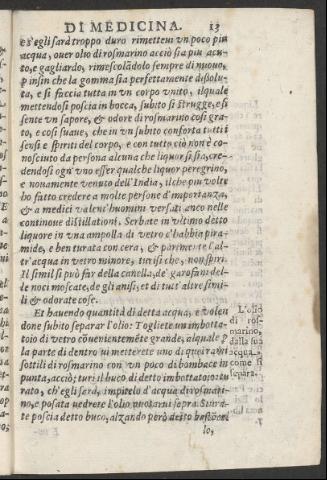 DI MEDICINA. 13
e s'egli sarà troppo duro rimettevi vn poco piu
acqua, ouer olio di rosmarino acciò sia piu acu-
to, e gagliardo, rimescolãdolo sempre di nuouo,
p insin che la gomma sia perfettamente dissolu-
ta, e si faccia tutta in vn corpo vnito, ilquale
mettendosi poscia in bocca, subito si strugge, e si
sente vn sapore, & odore di rosmarino cosi gra-
to, e cosi suaue, che in vn subito conforta tutti i
sensi e spiriti del corpo, e con tutto ciò non è co-
nosciuto da persona alcuna che liquor si sia, cre-
dendosi ogni vno esser qualche liquor peregrino,
e nouamente venuto dell'India, ilche piu volte
ho fatto credere a molte persone d'importanza,
& a medici valent'huomini versati anco nelle
continoue distillationi. Serbate in vltimo detto
liquore in vna ampolla di vetro c'habbia pira-
mide, e ben turata con cera, & parimente l'al-
tr'acqua in vetro minore, turisi che, non spiri.
Il simil si può far della canella, de' garofani del-
le noci moscate, de gli anisi, et di tutt'altre simi-
li & odorate cose.
Et hauendo quantità di detta acqua, e volen
done subito separar l'olio: Togliete un imbotta-
toio di vetro cõuenientemẽte grande, alquale p
la parte di dentro ui metterete uno di queirami
sottili di rosmarino con vn poco di bombace in
punta, acciò; turi il buco di detto imbottatoio: tu
rato, ch'egli sarà, impitelo d'acqua di rosmari-
no, e posata uedrete l'olio nuotarui sopra. Stura-
te poscia detto buco, alzando però detto bastõcel
lo,
L'olio
di ros-
marino,
dalla sua
acqua
come si
separa.